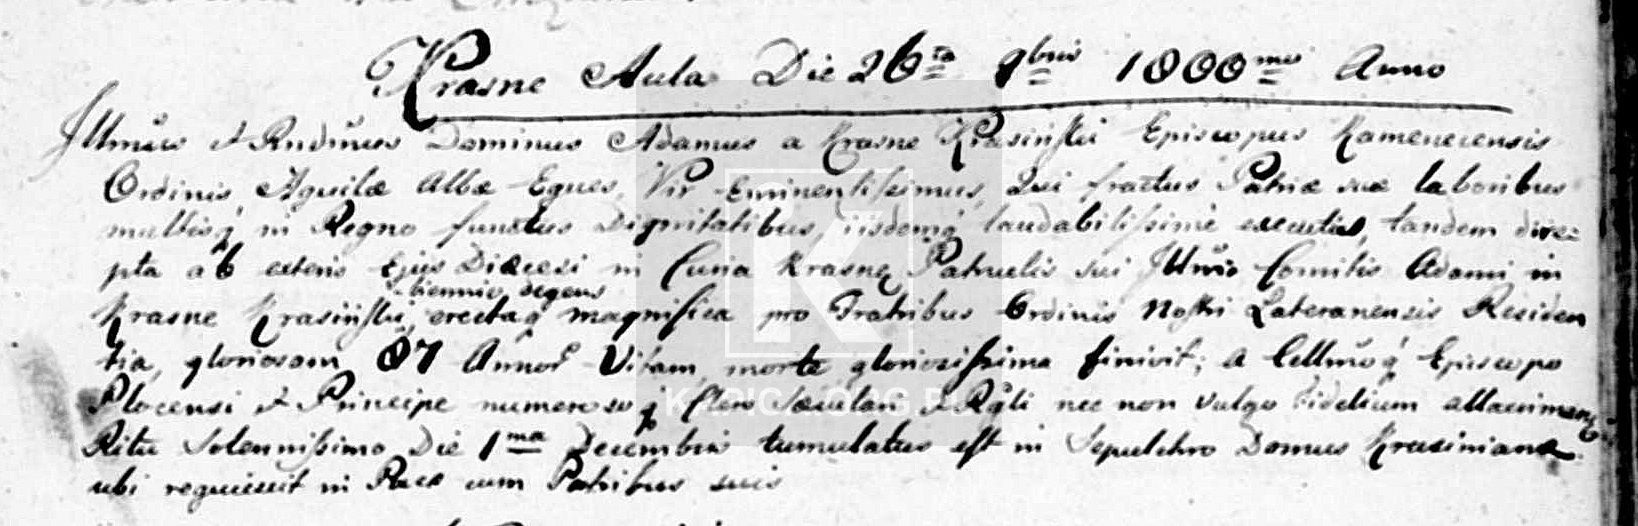 Krasne Aula Die 26ta 9bris 1800mo Anno
Illmus et Rndmus Dominus Adamus a Krasne Krasinski Episcopus Kamenecensis
Ordinis Aquilæ Albæ Eques, Vir Eminentissimus, Qui fractus Patriæ suæ laboribus
multisq in Regno functus Dignitatibus, iisdemq laudabilissimè executis, tandem dire=
pta ab exteris Ejus Diæcesi in Curia Krasne Patruelis sui Illmi Comitis Adami in
biennio degens
Krasne Krasinski, erectaq magnifica pro Fratribus Ordinis Nostri Lateranensis Residen
tia, gloriosam 87 Annor Vitam, morte gloriosissima finivit; a Cellmoq Episcopo
Plocensi et Principe numerosoq Clero Sæculari et Rgli nec non vulgo fidelium
Ritu Solennissimo Die 1ma Decembris tumulatus est in Sepulchro Domus Krasiniana
ubi requiescit in Pace cum Patribus suis
KRASICKI.ORG.PL